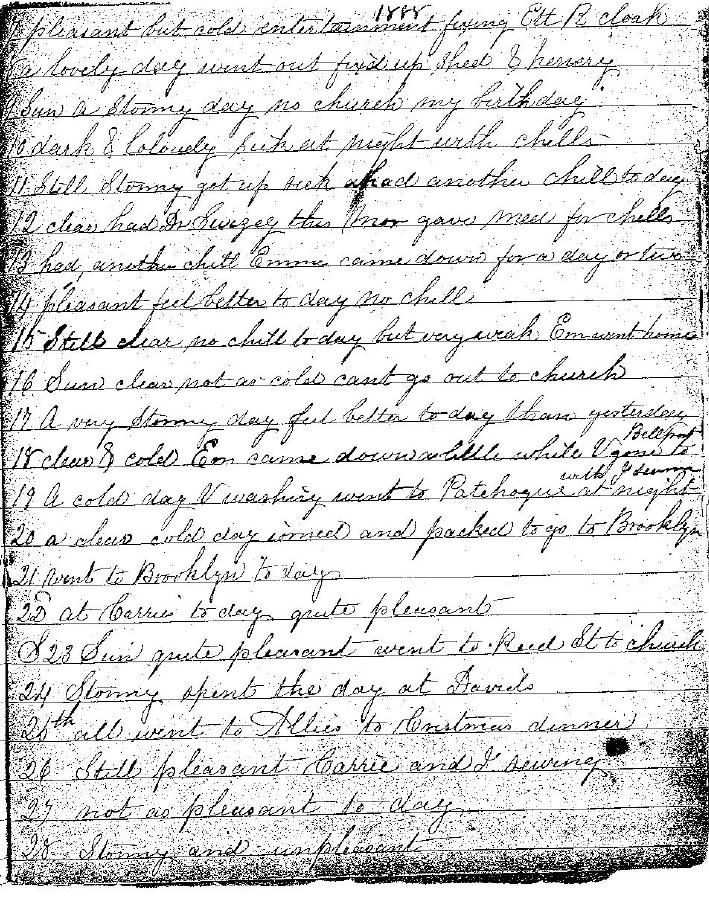 1888
pleasant but cold entertainment fixing Ett R cloak
a lovely day went out fixd up shed & henery
9 Sun a Stormy day no church my birthday
10 dark & Coloudy sick at night with chills
11 Still Stormy got up sick ahad another chill to day
12 clear had Dr this mor gave med for chills
13 had another chill Emma came down for a day or two
14 pleasant feel better to day no chill
15 Still clear no chill to day but very weak. Em went home
16 Sun clear not as cold cant go out to church
17 A very Stormy day feel better to day than yesterday
Bellport
18 clear & cold Em came down a little while V gone to
with J
19 A cold day V washing went to Patchogue at night
20 a clear cold day ironed and packed to go to Brooklyn
21 went to Brooklyn to day
22 at Carries to day quite pleasant
S 23 Sun quite pleasant went to Reed St to church
24 Stormy spent the day at Davids
25th all went to Allies to Cristmas dinner
26 Still pleasant Carrie and I sewing
27 not as pleasant to day
28 Stormy and unpleasant